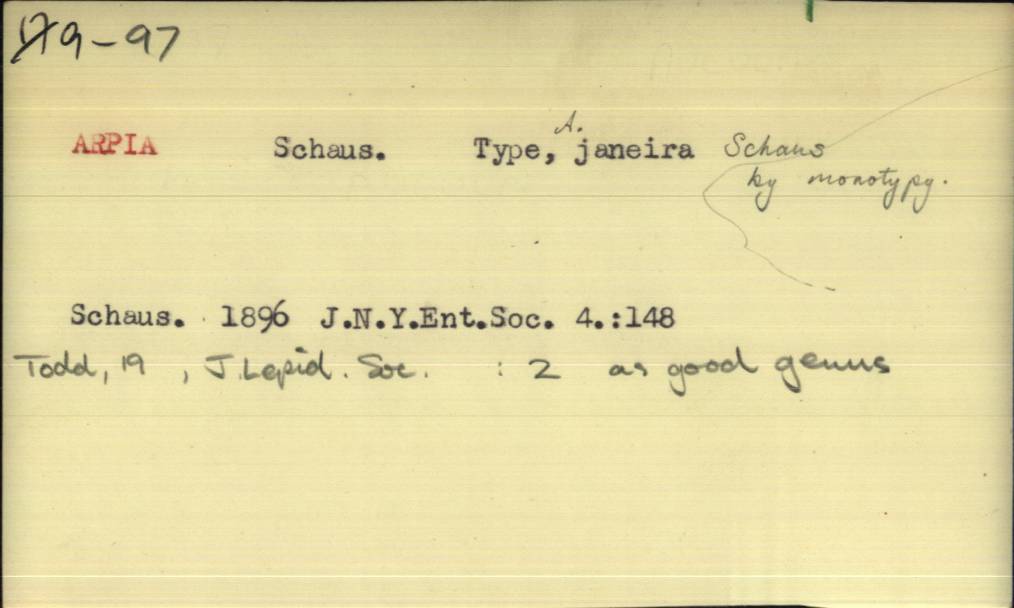 179-97
ARPIA Schaus. Type, A. janeira Schaus
by monotypy.
Schaus. 1896 J.N.Y.Ent.Soc. 4.:148
Todd, 19 , J. Lepid. Soc. : 2 as good genus